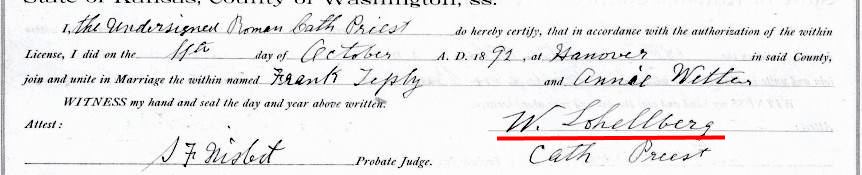 State of Kansas, County of Washington, ss.
I, the Undersigned Roman Cath Priest do hereby certify, that in accordance with the authorization of the within
License, I did on the 11th day of October A. D. 1892, at Hanover in said County,
join and unite in Marriage the within named Frank and Annie
WITNESS my hand and seal the day and year above written.
Attest: W. Schellberg
S F Nisbet Probate Judge. Cath Priest